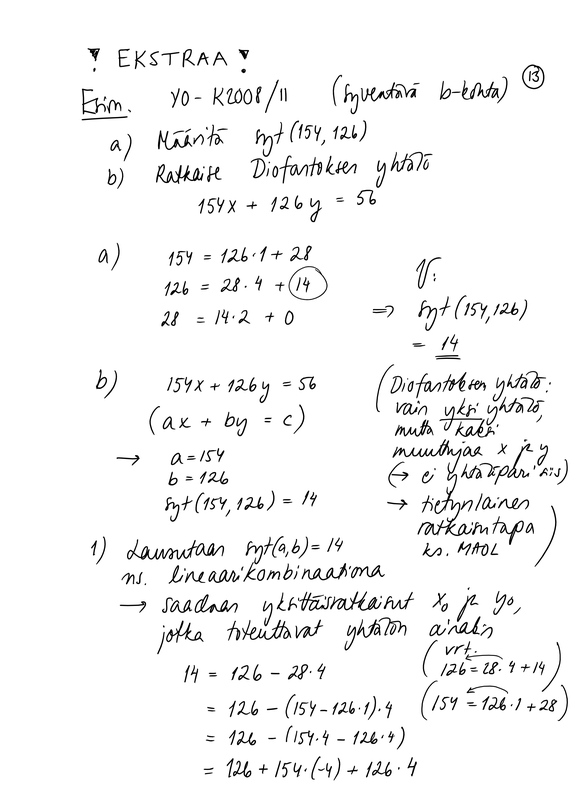 ! EKSTRAA !
13
Esim. YO - K2008/11 (syventävä b-kohta)
a) Määritä syt(154, 126)
b) Ratkaise Diofantoksen yhtälö
154x + 126y = 56
a) 154 = 126·1 + 28
126 = 28·4 + 14
28 = 14·2 + 0
V:
⇒ syt(154,126)
= 14
b) 154x + 126y = 56
(ax + by = c)
→ a = 154
b = 126
syt(154, 126) = 14
(Diofantoksen yhtälö:
vain yksi yhtälö,
mutta kaksi
muuttujaa x ja y
(→ ei yhtälöpari siis)
→ tietynlainen
ratkaisutapa
ks. MAOL)
1) Lausutaan syt(a,b) = 14
ns. lineaarikombinaationa
→ saadaan yksittäisratkaisut x₀ ja y₀,
jotka toteuttavat yhtälön ainakin
14 = 126 - 28·4
= 126 - (154 - 126·1)·4
= 126 - (154·4 - 126·4)
= 126 + 154·(-4) + 126·4
(vrt.
126 = 28·4 + 14)
(154 = 126·1 + 28)